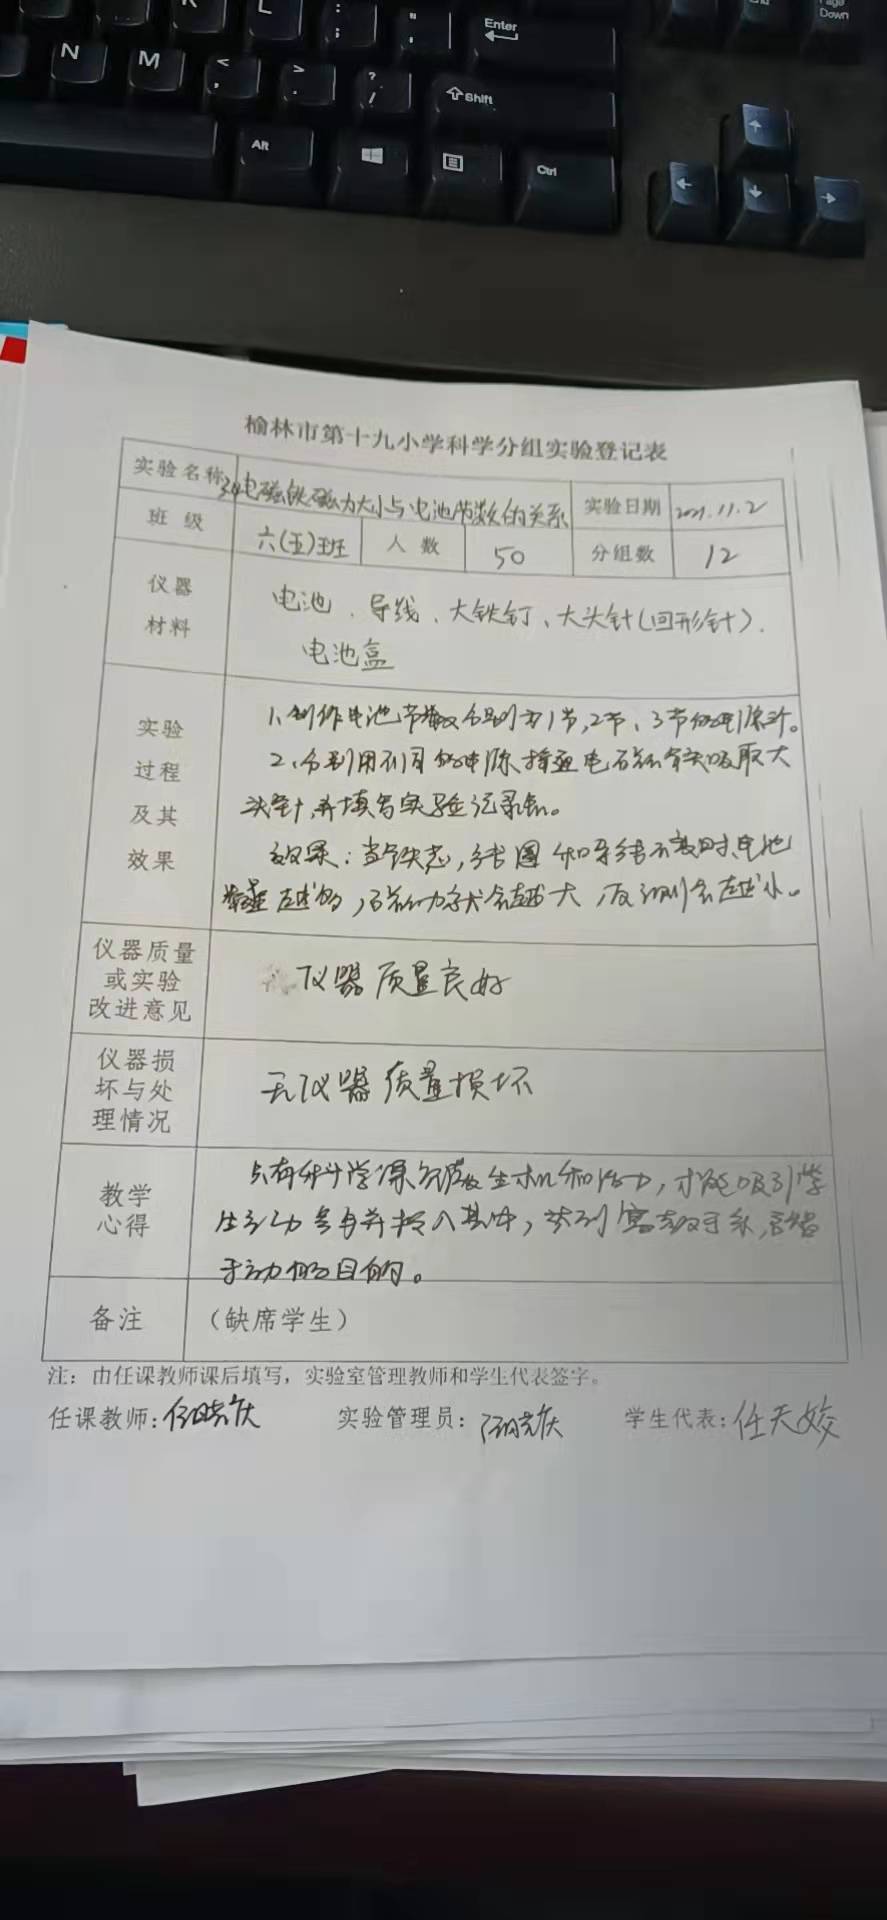 K
L
:
;
"
'
Enter
End
Page
Down
N
M
<
,
>
.
?
/
Shift
Alt
Ctrl
榆林市第十九小学科学分组实验登记表
实验名称 电磁铁磁力大小与电池节数的关系 实验日期 2021.11.2
班级 六(五)班 人数 50 分组数 12
仪器
材料
电池、导线、大铁钉、大头针(回形针)、
电池盒
实验
过程
及其
效果
1、制作电池节数分别为1节,2节、3节的电源。
2、分别用不同的电源接通电磁铁吸取大
头针,并填写实验记录表。
效果:当铁芯,线圈和导线不变时,电池
越多,磁力就会越大,反则会越小。
仪器质量
或实验
改进意见
仪器质量良好
仪器损
坏与处
理情况
无仪器质量损坏
教学
心得
只有科学课充满生机和活力,才能吸引学
生主动参与并投入其中,达到
手动的目的。
备注 (缺席学生)
注:由任课教师课后填写,实验室管理教师和学生代表签字。
任课教师:任晓庆 实验管理员:任晓庆 学生代表:任天姣